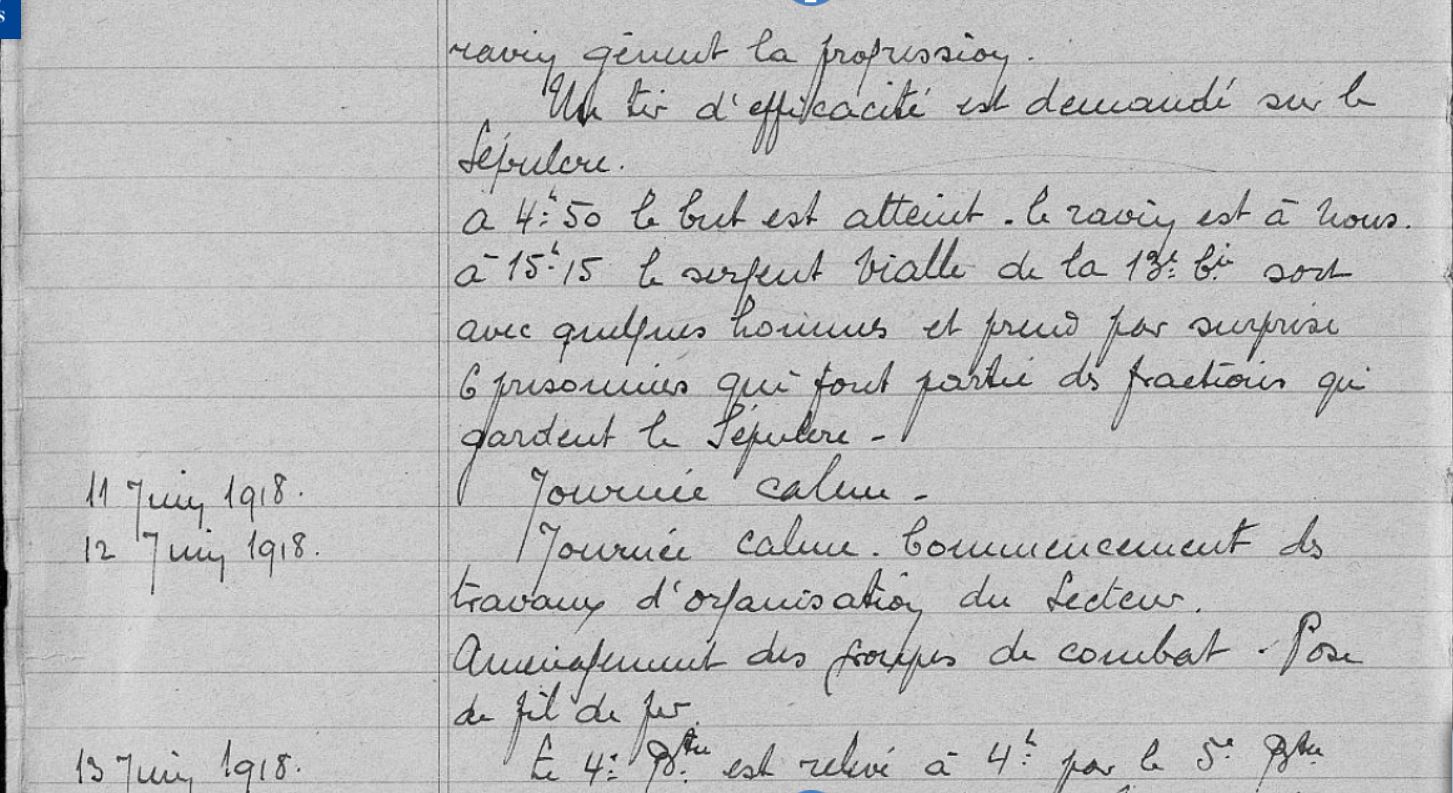 s
ravin gênent la progression.
Un tir d'efficacité est demandé sur le
Sépulcre.
à 4h 50 le but est atteint. le ravin est à nous.
à 15h 15 le sergent Vialle de la 13e Cie sort
avec quelques hommes et prend par surprise
6 prisonniers qui font partie des fractions qui
gardent le Sépulcre -
11 Juin 1918. Journée calme -
12 Juin 1918. Journée calme. Commencement des
travaux d'organisation du Secteur.
Aménagement des groupes de combat - Pose
de fil de fer.
13 Juin 1918. Le 4e Bton est relevé à 4h par le 5e Bton